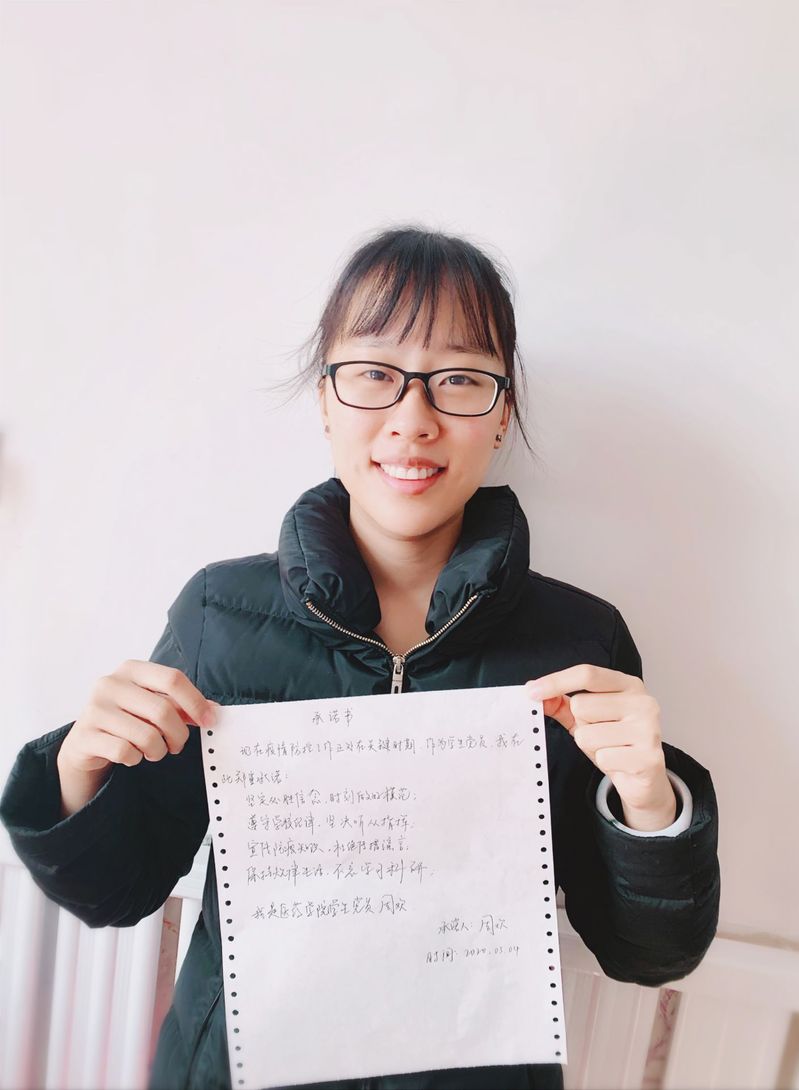 承诺书
现在疫情防控工作正处在关键时期,作为学生党员,我在
此郑重承诺:
坚定必胜信念,时刻做好模范;
遵守学校纪律,坚决听从指挥;
宣传防疫知识,杜绝传播谣言;
保持规律生活,不忘学习科研。
我是医药学院学生党员 周欢
承诺人:周欢
时间:2020.03.04